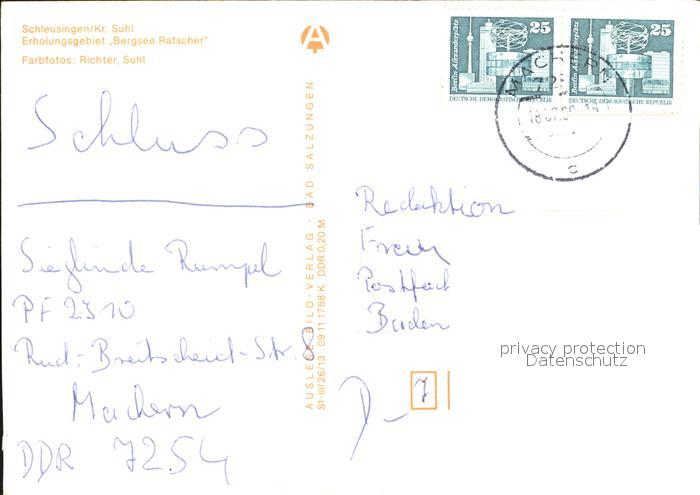 Schleusingen/Kr. Suhl
Erholungsgebiet „Bergsee Ratscher"
Farbfotos: Richter, Suhl
Schluss
Sieglinde Rumpel
PF 2310
Rud.-Breitscheid-Str. 8
Machern
DDR 7254
AUSLESE-BILD-VERLAG · BAD SALZUNGEN
S1-III/26/13 09 11 1758 K DDR 0,20 M
25
Berlin, Alexanderplatz
DEUTSCHE DEMOKRATISCHE REPUBLIK
25
Berlin, Alexanderplatz
DEUTSCHE DEMOKRATISCHE REPUBLIK
MACHERN
c
Redaktion
Postfach
Baden
D- 7
privacy protection
Datenschutz